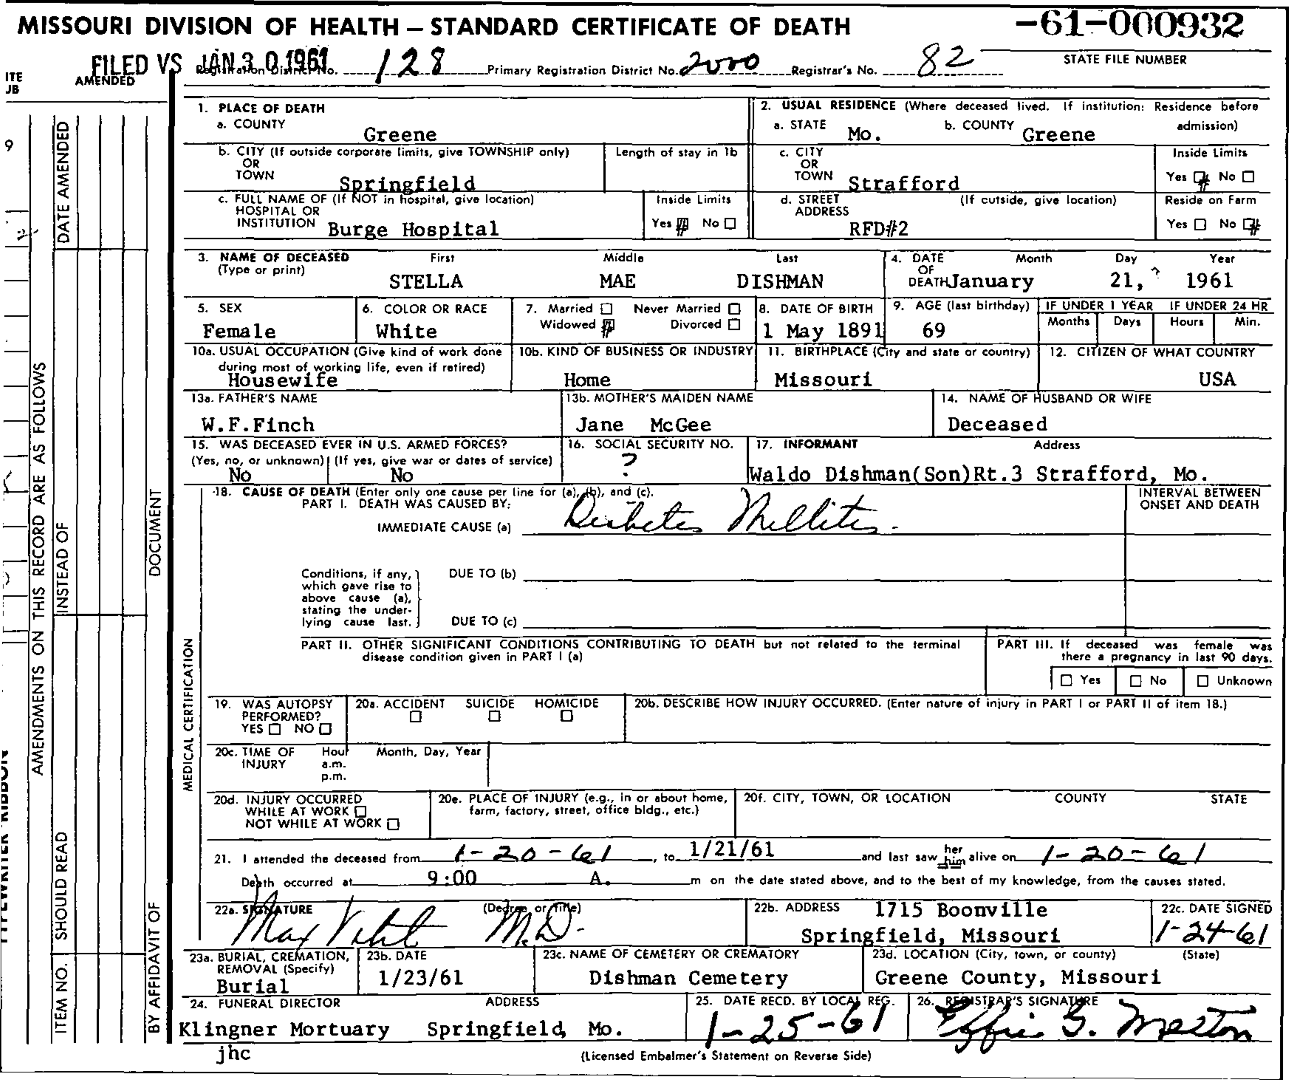 MISSOURI DIVISION OF HEALTH — STANDARD CERTIFICATE OF DEATH
-61-000932
FILED VS JAN 30 1961 Registration District No. 128 Primary Registration District No. 2000 Registrar's No. 82 STATE FILE NUMBER
AMENDED
1. PLACE OF DEATH
a. COUNTY Greene
2. USUAL RESIDENCE (Where deceased lived. If institution: Residence before admission)
a. STATE Mo. b. COUNTY Greene
b. CITY (If outside corporate limits, give TOWNSHIP only) OR TOWN Springfield
Length of stay in 1b
c. CITY OR TOWN Strafford
Inside Limits Yes No
c. FULL NAME OF (If NOT in hospital, give location) HOSPITAL OR INSTITUTION Burge Hospital
Inside Limits Yes No
d. STREET ADDRESS (If outside, give location) RFD#2
Reside on Farm Yes No
3. NAME OF DECEASED (Type or print) First Middle Last
STELLA MAE DISHMAN
4. DATE OF DEATH Month Day Year
January 21, 1961
5. SEX Female
6. COLOR OR RACE White
7. Married Never Married Widowed Divorced
8. DATE OF BIRTH 1 May 1891
9. AGE (last birthday) 69
IF UNDER 1 YEAR Months Days
IF UNDER 24 HR Hours Min.
10a. USUAL OCCUPATION (Give kind of work done during most of working life, even if retired) Housewife
10b. KIND OF BUSINESS OR INDUSTRY Home
11. BIRTHPLACE (City and state or country) Missouri
12. CITIZEN OF WHAT COUNTRY USA
13a. FATHER'S NAME W.F.Finch
13b. MOTHER'S MAIDEN NAME Jane McGee
14. NAME OF HUSBAND OR WIFE Deceased
15. WAS DECEASED EVER IN U.S. ARMED FORCES?
(Yes, no, or unknown) (If yes, give war or dates of service)
No No
16. SOCIAL SECURITY NO. ?
17. INFORMANT Address
Waldo Dishman(Son)Rt.3 Strafford, Mo.
18. CAUSE OF DEATH (Enter only one cause per line for (a), (b), and (c).
PART I. DEATH WAS CAUSED BY:
IMMEDIATE CAUSE (a) Diabetes Mellitus.
INTERVAL BETWEEN ONSET AND DEATH
Conditions, if any, which gave rise to above cause (a), stating the underlying cause last.
DUE TO (b)
DUE TO (c)
PART II. OTHER SIGNIFICANT CONDITIONS CONTRIBUTING TO DEATH but not related to the terminal disease condition given in PART I (a)
PART III. If deceased was female was there a pregnancy in last 90 days.
Yes No Unknown
19. WAS AUTOPSY PERFORMED? YES NO
20a. ACCIDENT SUICIDE HOMICIDE
20b. DESCRIBE HOW INJURY OCCURRED. (Enter nature of injury in PART I or PART II of item 18.)
20c. TIME OF INJURY Hour a.m. p.m. Month, Day, Year
20d. INJURY OCCURRED WHILE AT WORK NOT WHILE AT WORK
20e. PLACE OF INJURY (e.g., in or about home, farm, factory, street, office bldg., etc.)
20f. CITY, TOWN, OR LOCATION COUNTY STATE
21. I attended the deceased from 1-20-61, to 1/21/61 and last saw her him alive on 1-20-61
Death occurred at 9:00 A. m on the date stated above, and to the best of my knowledge, from the causes stated.
22a. SIGNATURE (Degree or Title) Max M.D.
22b. ADDRESS 1715 Boonville Springfield, Missouri
22c. DATE SIGNED 1-24-61
23a. BURIAL, CREMATION, REMOVAL (Specify) Burial
23b. DATE 1/23/61
23c. NAME OF CEMETERY OR CREMATORY Dishman Cemetery
23d. LOCATION (City, town, or county) (State) Greene County, Missouri
24. FUNERAL DIRECTOR ADDRESS
Klingner Mortuary Springfield, Mo.
25. DATE RECD. BY LOCAL REG. 1-25-61
26. REGISTRAR'S SIGNATURE Effie G. Meston
jhc
(Licensed Embalmer's Statement on Reverse Side)
MEDICAL CERTIFICATION
AMENDMENTS ON THIS RECORD ARE AS FOLLOWS
DATE AMENDED
INSTEAD OF
DOCUMENT
SHOULD READ
ITEM NO.
BY AFFIDAVIT OF